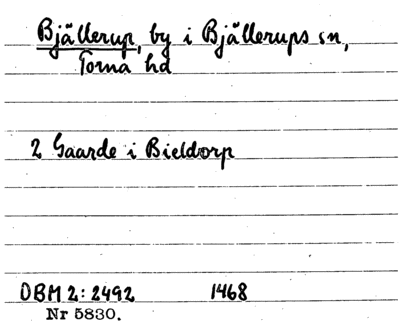 Bjällerup, by i Bjällerups sn,
Torna hd
2 Gaarde i Bieldorp
DBM 2:2492 1468
Nr 5830.